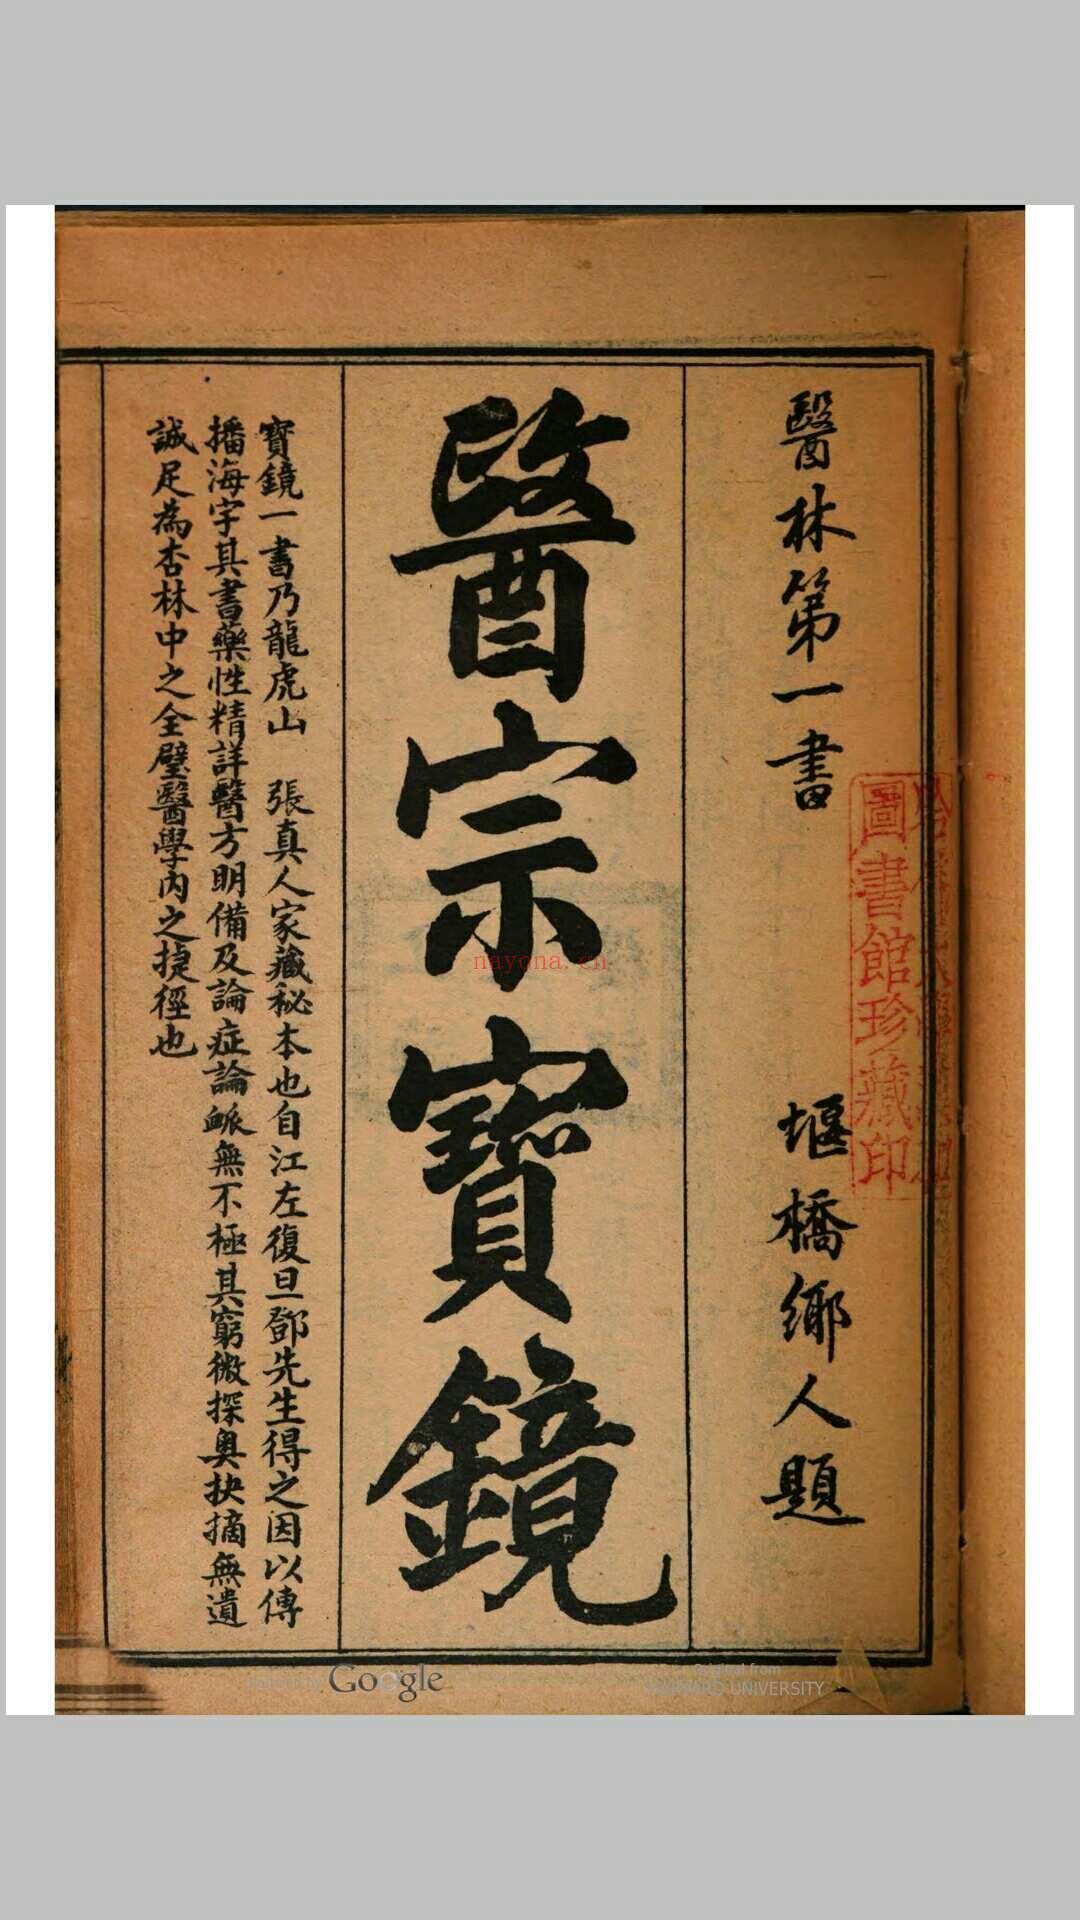 醫林第一書
堰橋鄉人題
醫宗寶鏡
寶鏡一書乃龍虎山　張真人家藏秘本也自江左復旦鄧先生得之因以傳
播海宇其書藥性精詳醫方明備及論症論脈無不極其窮微探奥抉摘無遺
誠足為杏林中之全璧醫學內之捷徑也
圖書館珍藏印
nayona.cn
Google
Original from
HARVARD UNIVERSITY